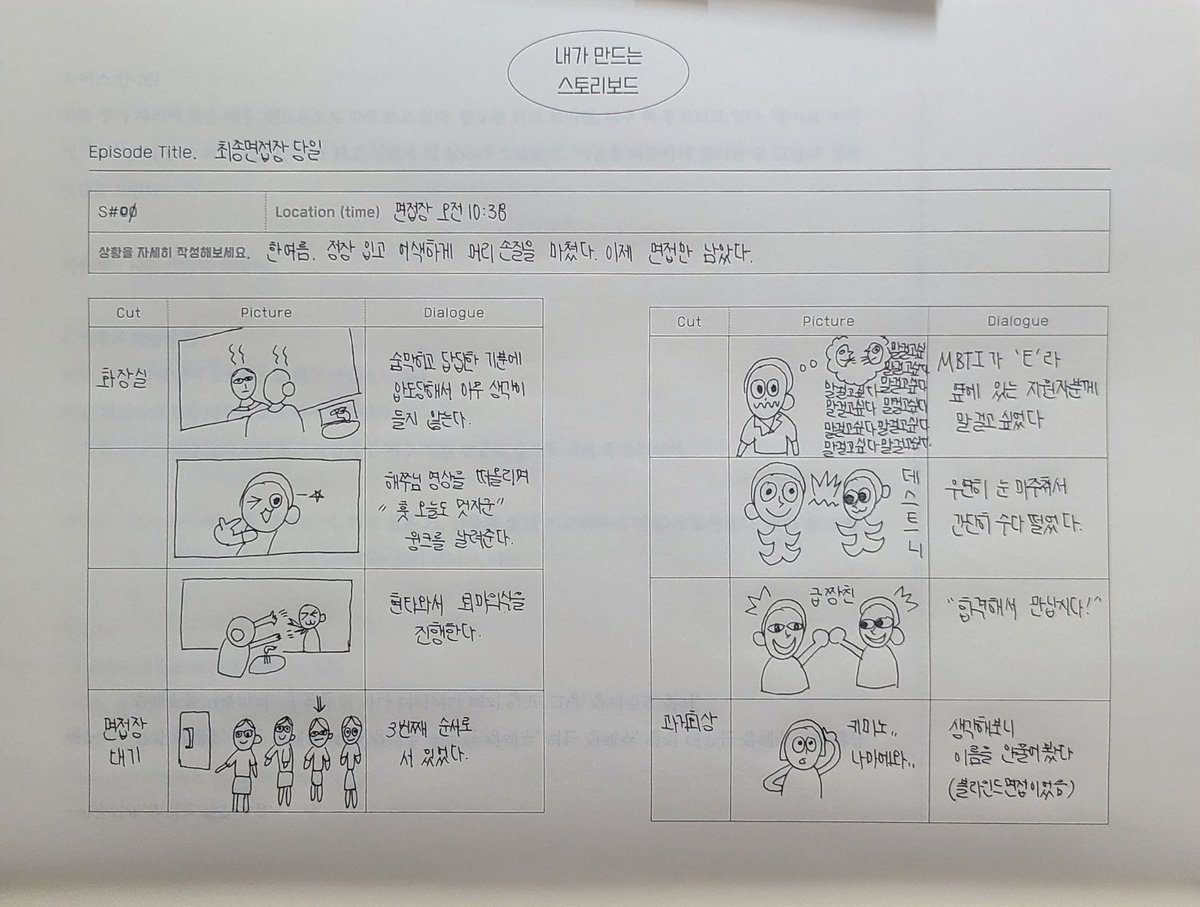 내가 만드는
스토리보드
Episode Title. 최종면접장 당일
S#00
Location (time) 면접장 오전 10:38
상황을 자세히 작성해보세요. 한여름. 정장 입고 어색하게 머리 손질을 마쳤다. 이제 면접만 남았다.
Cut Picture Dialogue
화장실
숨막히고 답답한 기분에
압도당해서 아무 생각이
들지 않는다.
해쭈님 영상을 떠올리며
"훗 오늘도 멋지군"
윙크를 날려준다.
현타와서 퇴마의식을
진행한다.
면접장
대기
3번째 순서로
서 있었다.
Cut Picture Dialogue
말걸고싶다
말걸고싶다
말걸고싶다 말걸고싶다
말걸고싶다 말걸고싶다
말걸고싶다 말걸고싶다
말걸고싶다 말걸고싶다
MBTI가 'E'라
옆에 있는 지원자분께
말 걸고 싶었다
데스트니
우연히 눈 마주쳐서
간단히 수다 떨었다.
급짱친
"합격해서 만납시다!"
과거회상
키미노..
나마에와..
생각해보니
이름을 안물어봤다
(블라인드면접이었음)